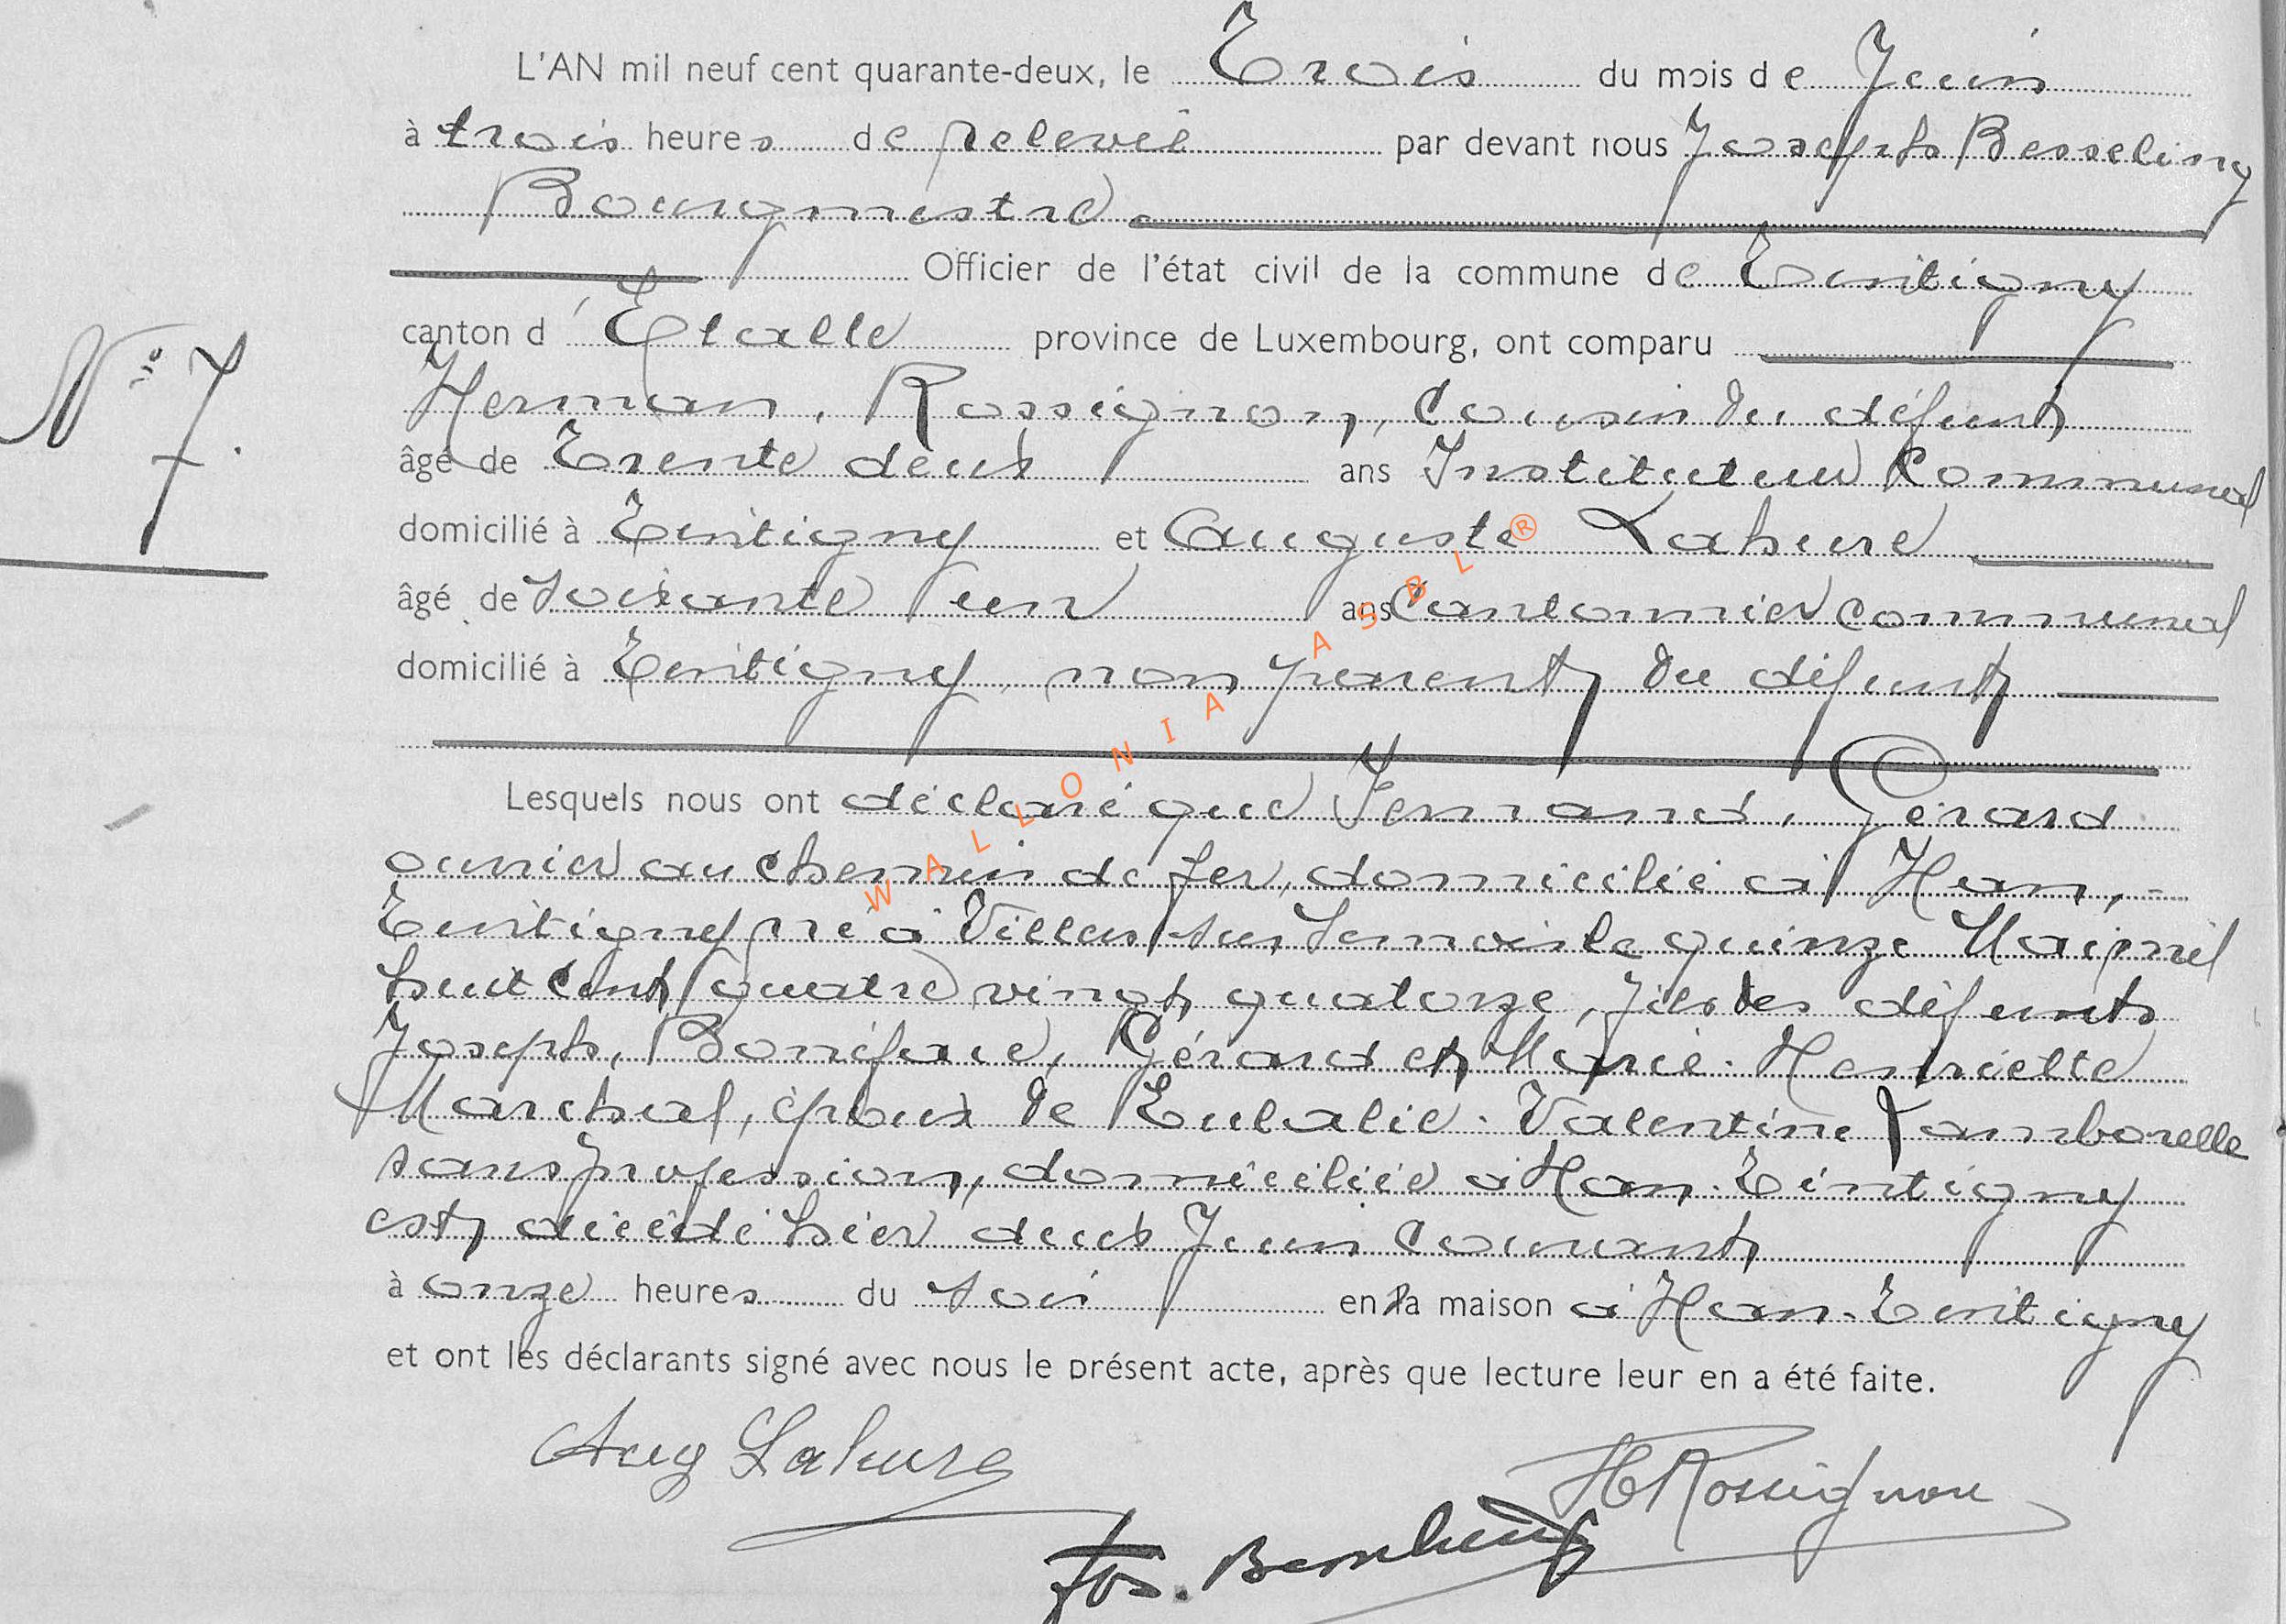 L'AN mil neuf cent quarante-deux, le Trois du mois de Juin
à trois heures de relevée par devant nous Joseph Besseling
Bourgmestre
Officier de l'état civil de la commune de Tintigny
canton d'Etalle province de Luxembourg, ont comparu
N° 7.
Herman, Rossignon, Cousin du défunt
âgé de Trente deux ans Instituteur Communal
domicilié à Tintigny et Auguste Lahure
âgé de Soixante un ans Cantonnier communal
domicilié à Tintigny, non parent du défunt
Lesquels nous ont déclaré que Fernand, Gérard
ouvrier au chemin de fer, domicilié à Han,-
Tintigny né à Villers sur Semois le quinze Mai mil
huit cent quatre vingt quatorze, fils des défunts
Joseph, Boniface, Gérard et Marie-Henriette
Marchal, époux de Eulalie-Valentine Lamborelle
sans profession, domiciliée à Han-Tintigny
est décédé hier deux Juin courant
à onze heures du soir en sa maison à Han-Tintigny
et ont les déclarants signé avec nous le présent acte, après que lecture leur en a été faite.
Aug Lahure
HRossignon
Jos. Besseling
WALLONIA ASBL®